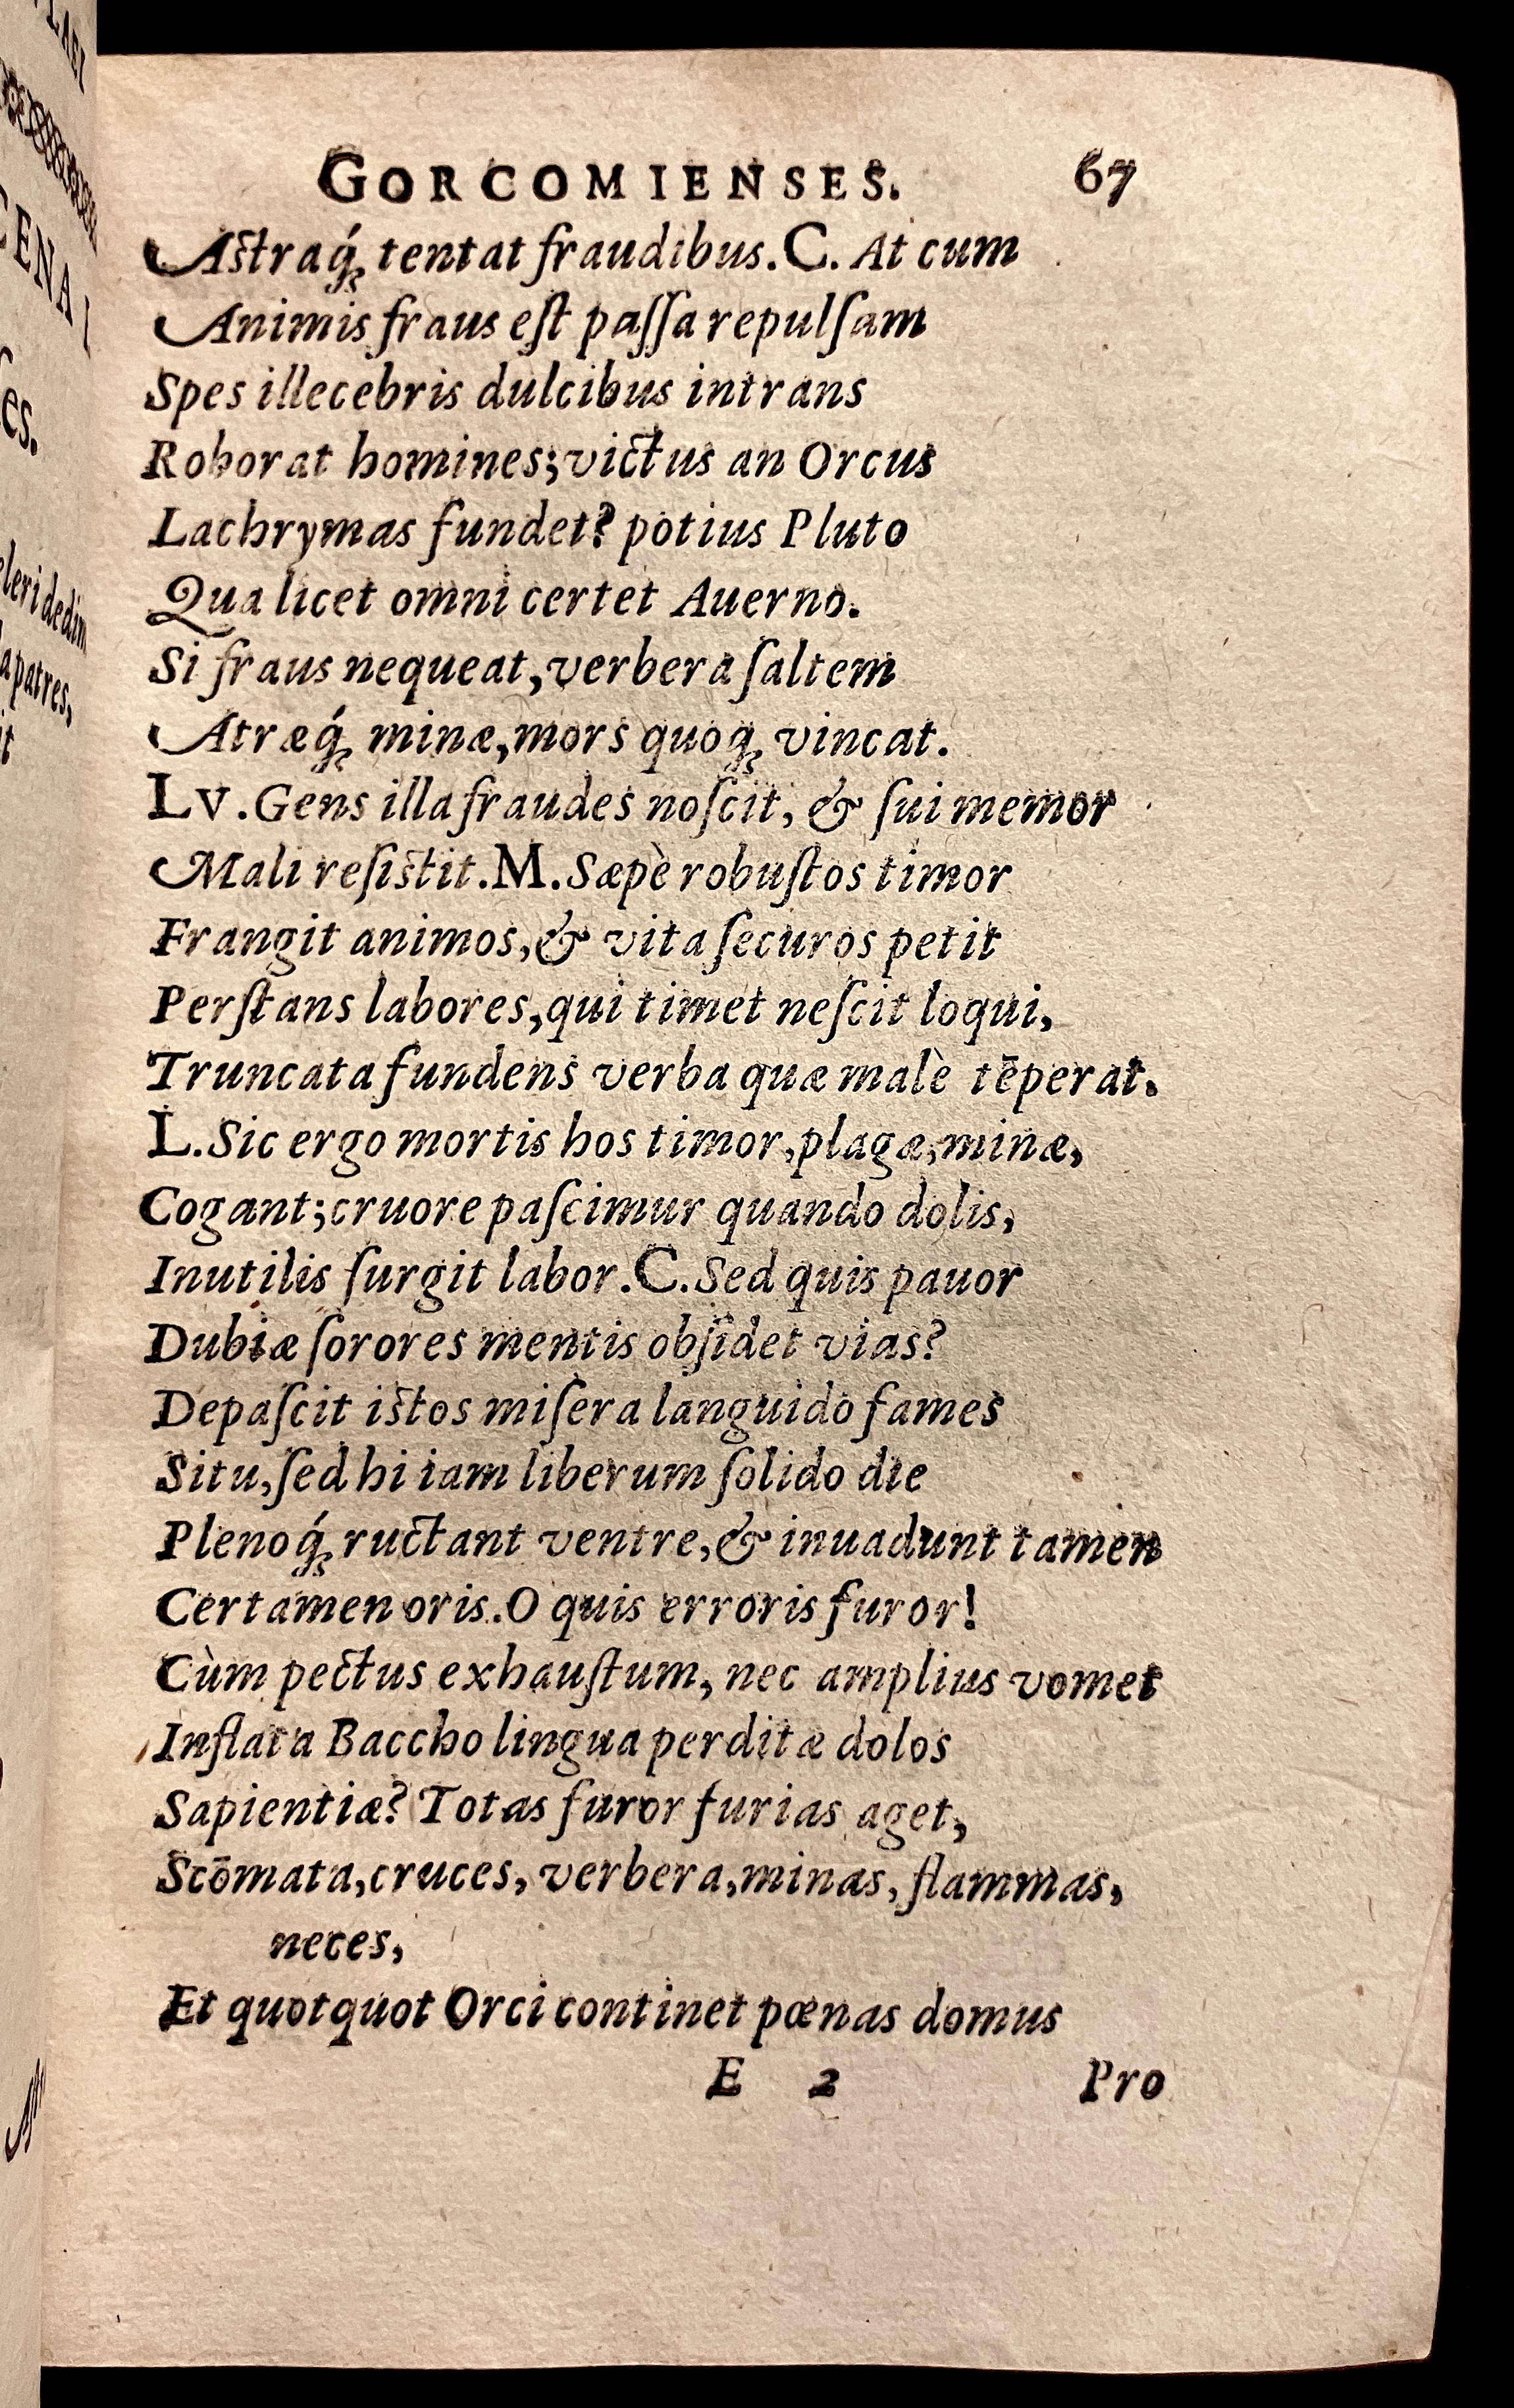 GORCOMIENSES. 67
Astraq́; tentat fraudibus. C. At cum
Animis fraus eſt paſſa repulſam
Spes illecebris dulcibus intrans
Roborat homines; victus an Orcus
Lachrymas fundet? potius Pluto
Qua licet omni certet Auerno.
Si fraus nequeat, verbera ſaltem
Atræq́; minæ, mors quoq; vincat.
LV. Gens illa fraudes noſcit, & ſui memor
Mali reſiſtit. M. Sæpè robuſtos timor
Frangit animos, & vita ſecuros petit
Perſtans labores, qui timet neſcit loqui,
Truncata fundens verba quæ malè tēperat.
L. Sic ergo mortis hos timor, plagæ, minæ,
Cogant; cruore paſcimur quando dolis,
Inutilis ſurgit labor. C. Sed quis pauor
Dubiæ ſorores mentis obſidet vias?
Depaſcit iſtos miſera languido fames
Situ, ſed hi iam liberum ſolido die
Plenoq́; ructant ventre, & inuadunt tamen
Certamen oris. O quis erroris furor!
Cùm pectus exhauſtum, nec amplius vomet
Inflata Baccho lingua perditæ dolos
Sapientiæ? Totas furor furias aget,
Scōmata, cruces, verbera, minas, flammas,
neces,
Et quotquot Orci continet pœnas domus
E 2 Pro
es.